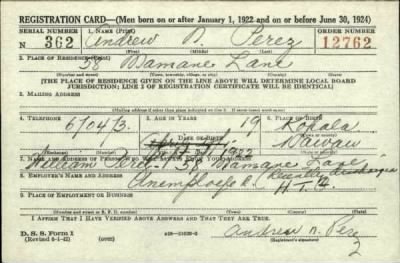 REGISTRATION CARD—(Men born on or after January 1, 1922 and on or before June 30, 1924)
SERIAL NUMBER 1. NAME (Print) ORDER NUMBER
N 362 Andrew N. Perez 12762
(First) (Middle) (Last)
2. PLACE OF RESIDENCE (Print)
58 Mamane Lane
(Number and street) (Town, township, village, or city) (County) (State)
[THE PLACE OF RESIDENCE GIVEN ON THE LINE ABOVE WILL DETERMINE LOCAL BOARD
JURISDICTION; LINE 2 OF REGISTRATION CERTIFICATE WILL BE IDENTICAL]
3. MAILING ADDRESS
4. TELEPHONE 5. AGE IN YEARS 6. PLACE OF BIRTH
67043 19 Kohala
DATE OF BIRTH Hawaii
1922
7. NAME AND ADDRESS OF PERSON WHO WILL ALWAYS KNOW YOUR ADDRESS
William Perez 58 Mamane Lane
8. EMPLOYER'S NAME AND ADDRESS
Unemployed Recently discharged
H.T.G.
9. PLACE OF EMPLOYMENT OR BUSINESS
(Number and street or R. F. D. number) (Town) (County) (State)
I AFFIRM THAT I HAVE VERIFIED ABOVE ANSWERS AND THAT THEY ARE TRUE.
D. S. S. Form 1
(Revised 6-1-42) (over) Andrew N. Perez
(Registrant's signature)